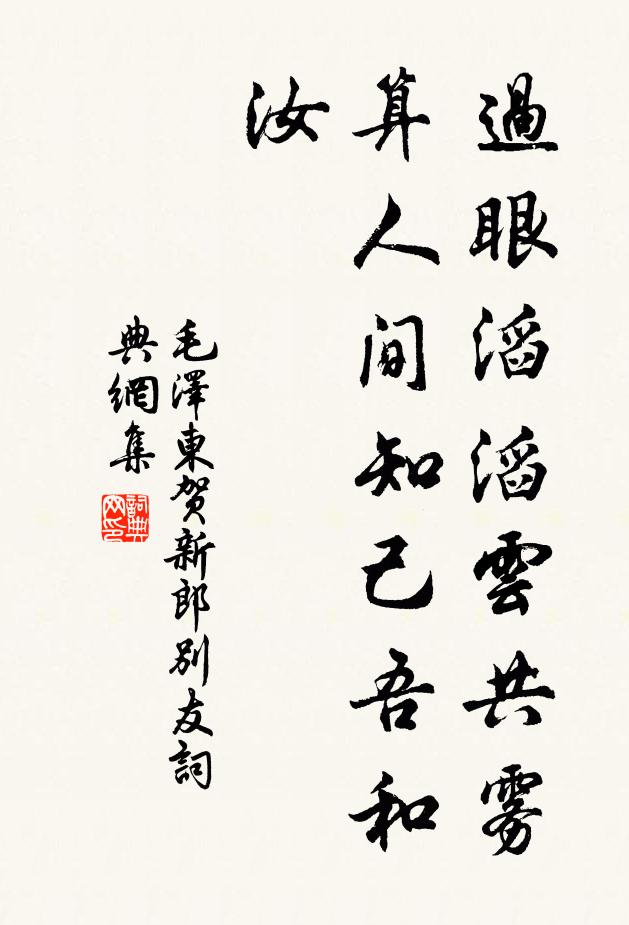 過眼滔滔雲共雾
算人間知己吾和
汝
毛澤東贺新郎别友詞
典網集
詞典
网印